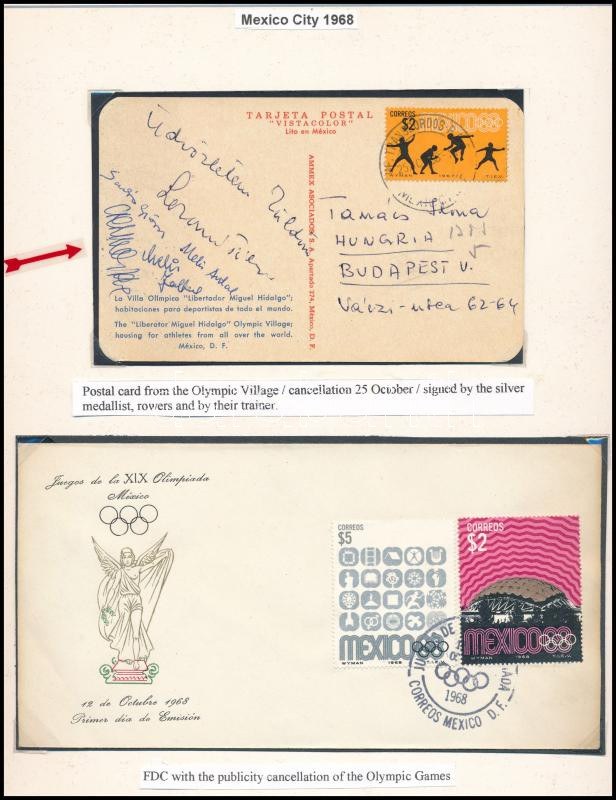 Mexico City 1968
TARJETA POSTAL
"VISTACOLOR"
Lito en México
AMMEX ASOCIADOS, S. A., Apartado 224, México, D. F.
CORREOS
$2
MEXICO68
WYMAN 1967
Üdvözletem küldöm
La Villa Olímpica "Libertador Miguel Hidalgo";
habitaciones para deportistas de todo el mundo.
The "Liberator Miguel Hidalgo" Olympic Village;
housing for athletes from all over the world.
México, D. F.
Tamács Ilona
HUNGRIA
BUDAPEST V.
Váczi-utca 62-64
Postal card from the Olympic Village / cancellation 25 October / signed by the silver
medallist, rowers and by their trainer.
Juegos de la XIX Olimpiada
México
12 de Octubre 1968
Primer día de Emisión
CORREOS
$5
MEXICO
WYMAN 1968
CORREOS
$2
MEXICO68
WYMAN 1968
1968
CORREOS MEXICO D. F.
FDC with the publicity cancellation of the Olympic Games